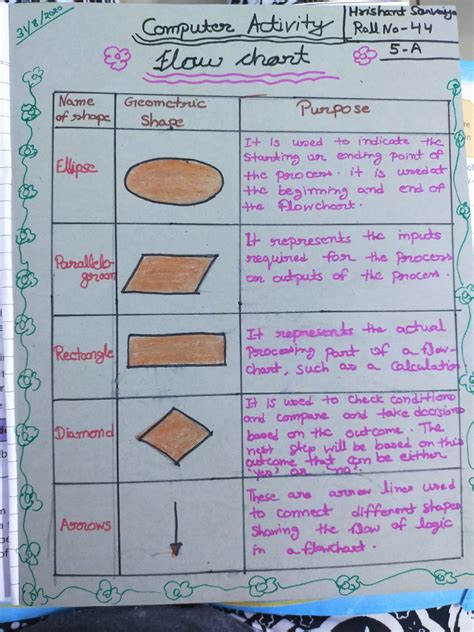 31/8/2020
Computer Activity
Hrishant
Roll No-44
5-A
Flow chart
Name of shape
Geometric Shape
Purpose
Ellipse
It is used to indicate the
starting or ending point of
the process. it is used at
the beginning and end of
the flowchart.
Parallelo-
gram
It represents the inputs
required for the process
or outputs of the process.
Rectangle
It represents the actual
Processing part of a flow-
chart, such as a calculation
Diamond
It is used to check conditions
and compare and take decisions
based on the outcome. The
next step will be based on this
outcome that can be either
'yes' or 'no'.
Arrows
These are arrow lines used
to connect different shapes
showing the flow of logic
in a flowchart.